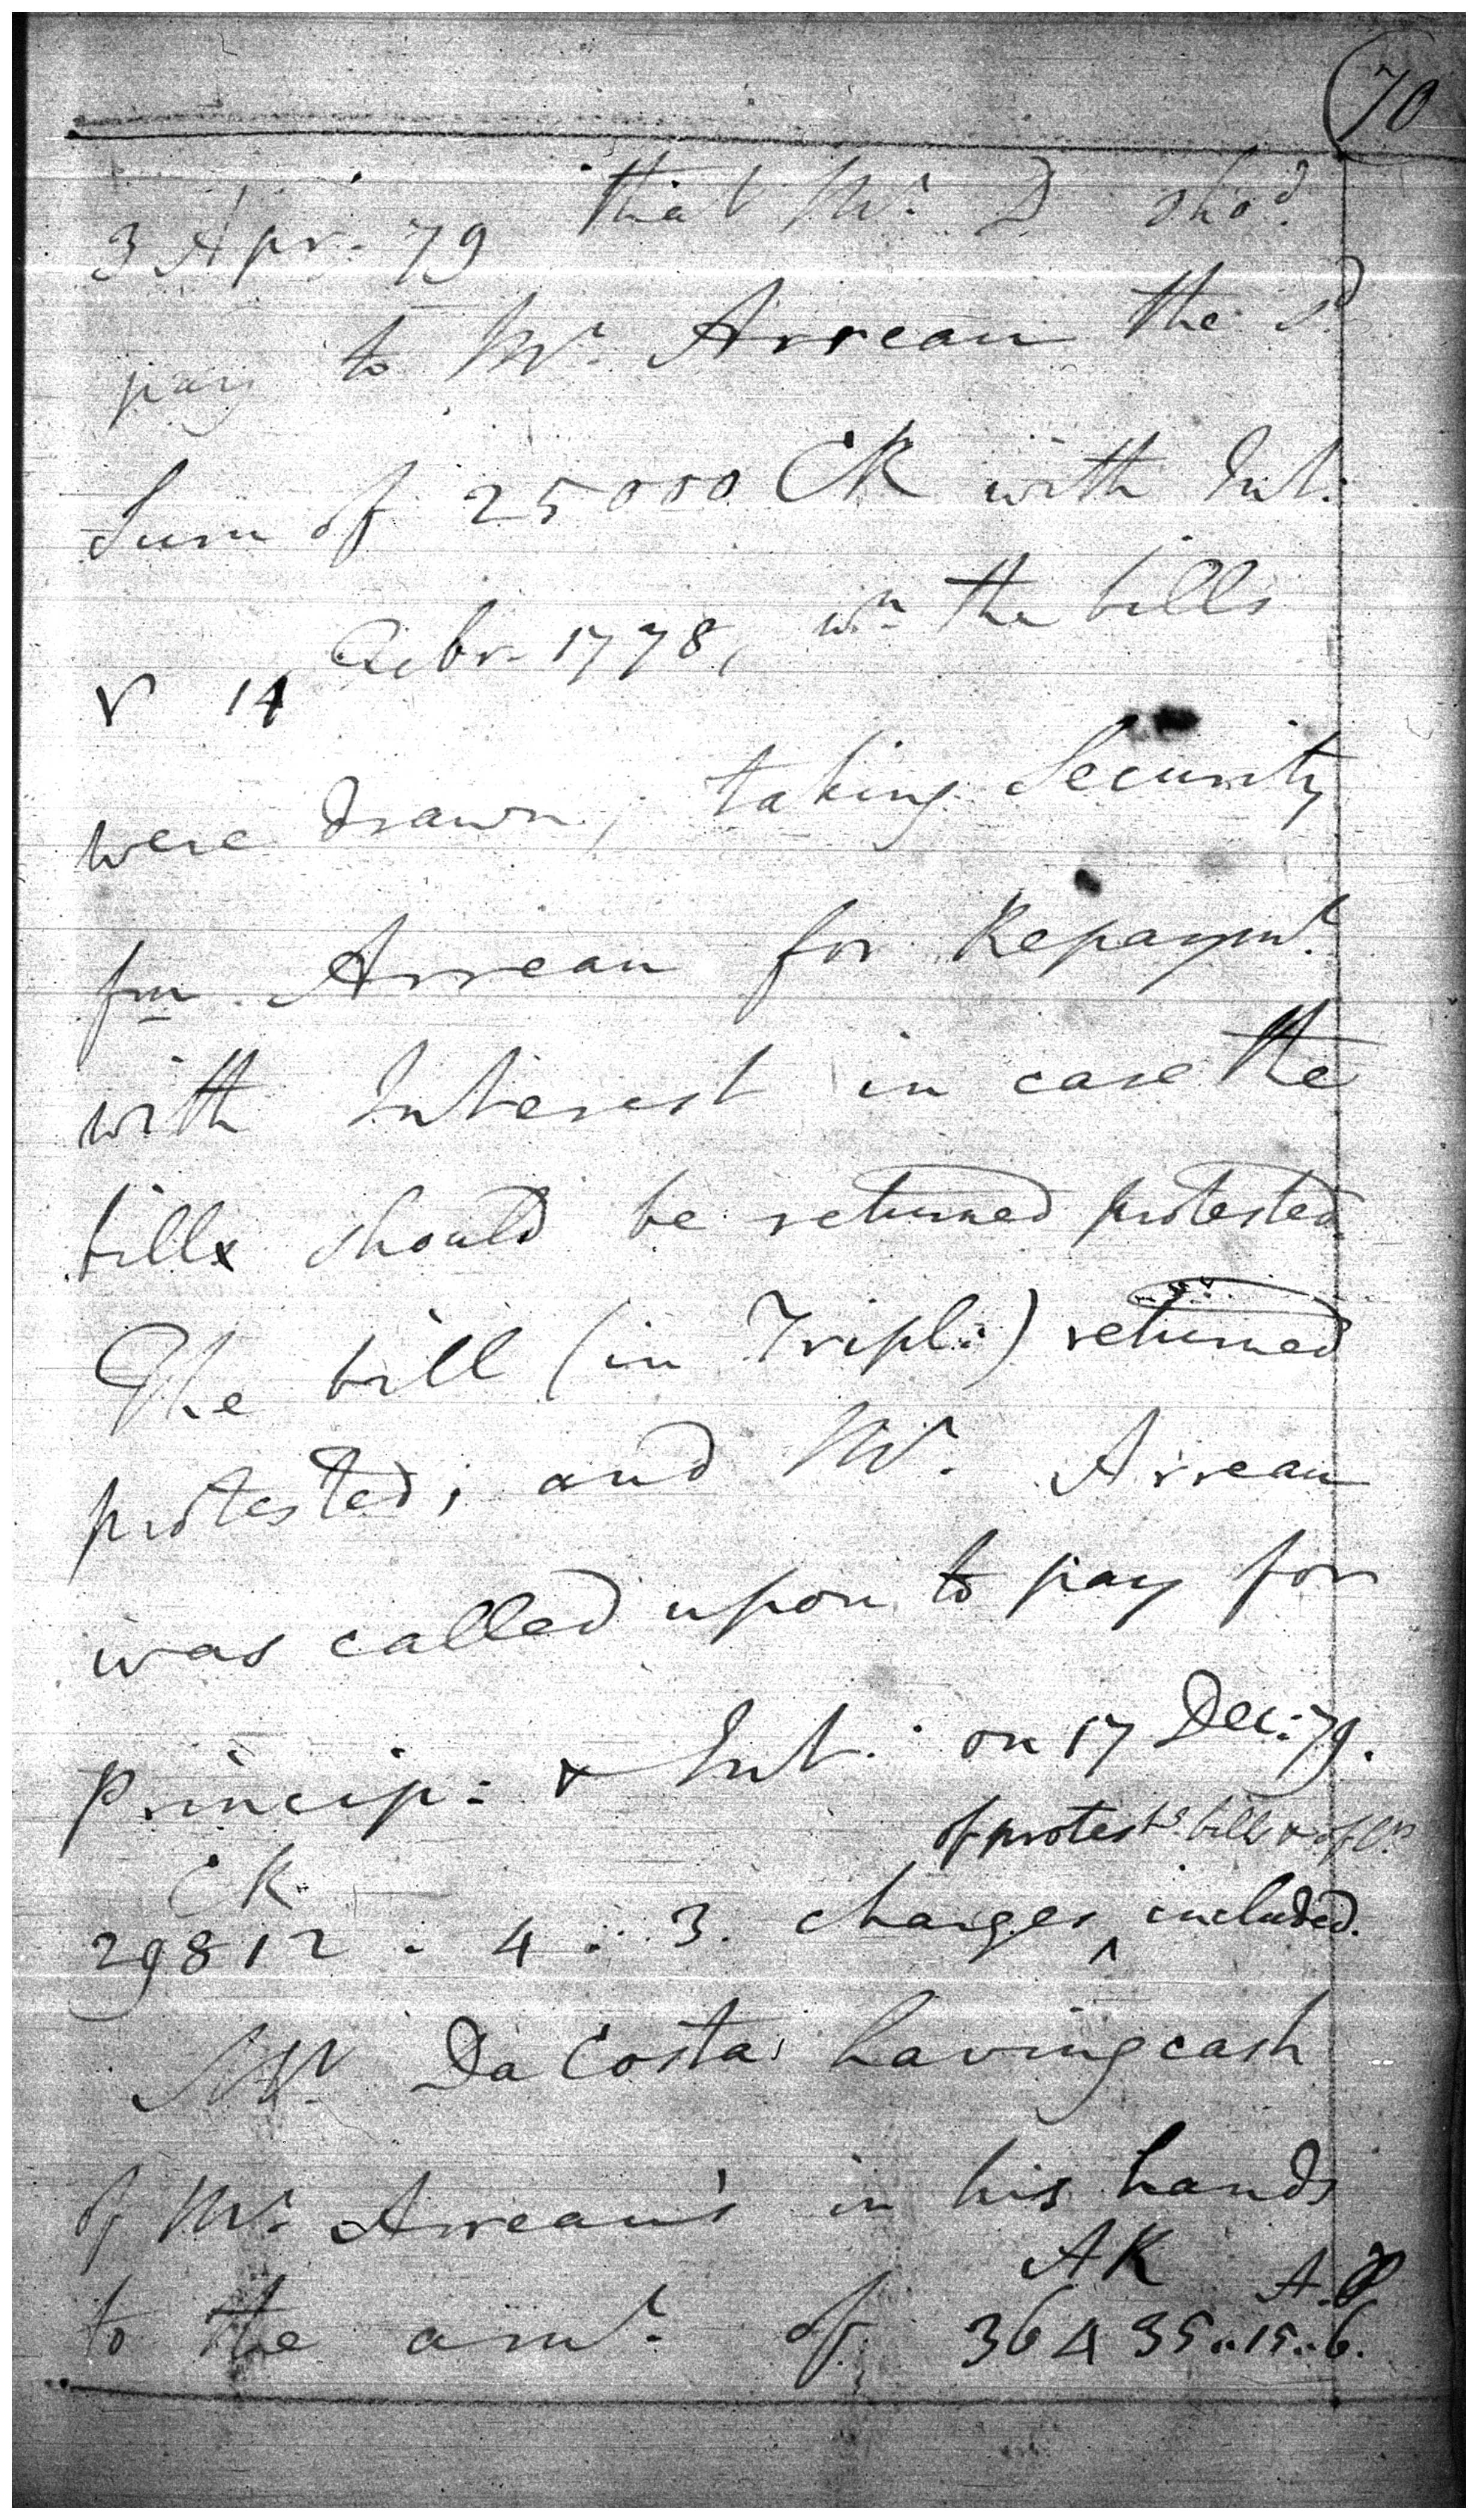 70
3 Apr. 79 that Mr. D shod.
pay to Mr. Arreau the Sd
Sum of 25000 CR with Int.
14 1778, wn. the bills
were drawn, taking Security
fm Arreau for Repaymt.
with Interest in case the
bills should be returned protested.
The bill (in Tripl:) returned
protested; and Mr. Arreau
was called upon to pay for
Princip: & Int. on 17 Dec: 79.
of protestd. bills &
CR
29812 . 4 . 3. charges ^ included.
Mr. Da Costa having cash
of Mr. Arreau's in his hands
AR A.
to the amt. of 36435..15..6.